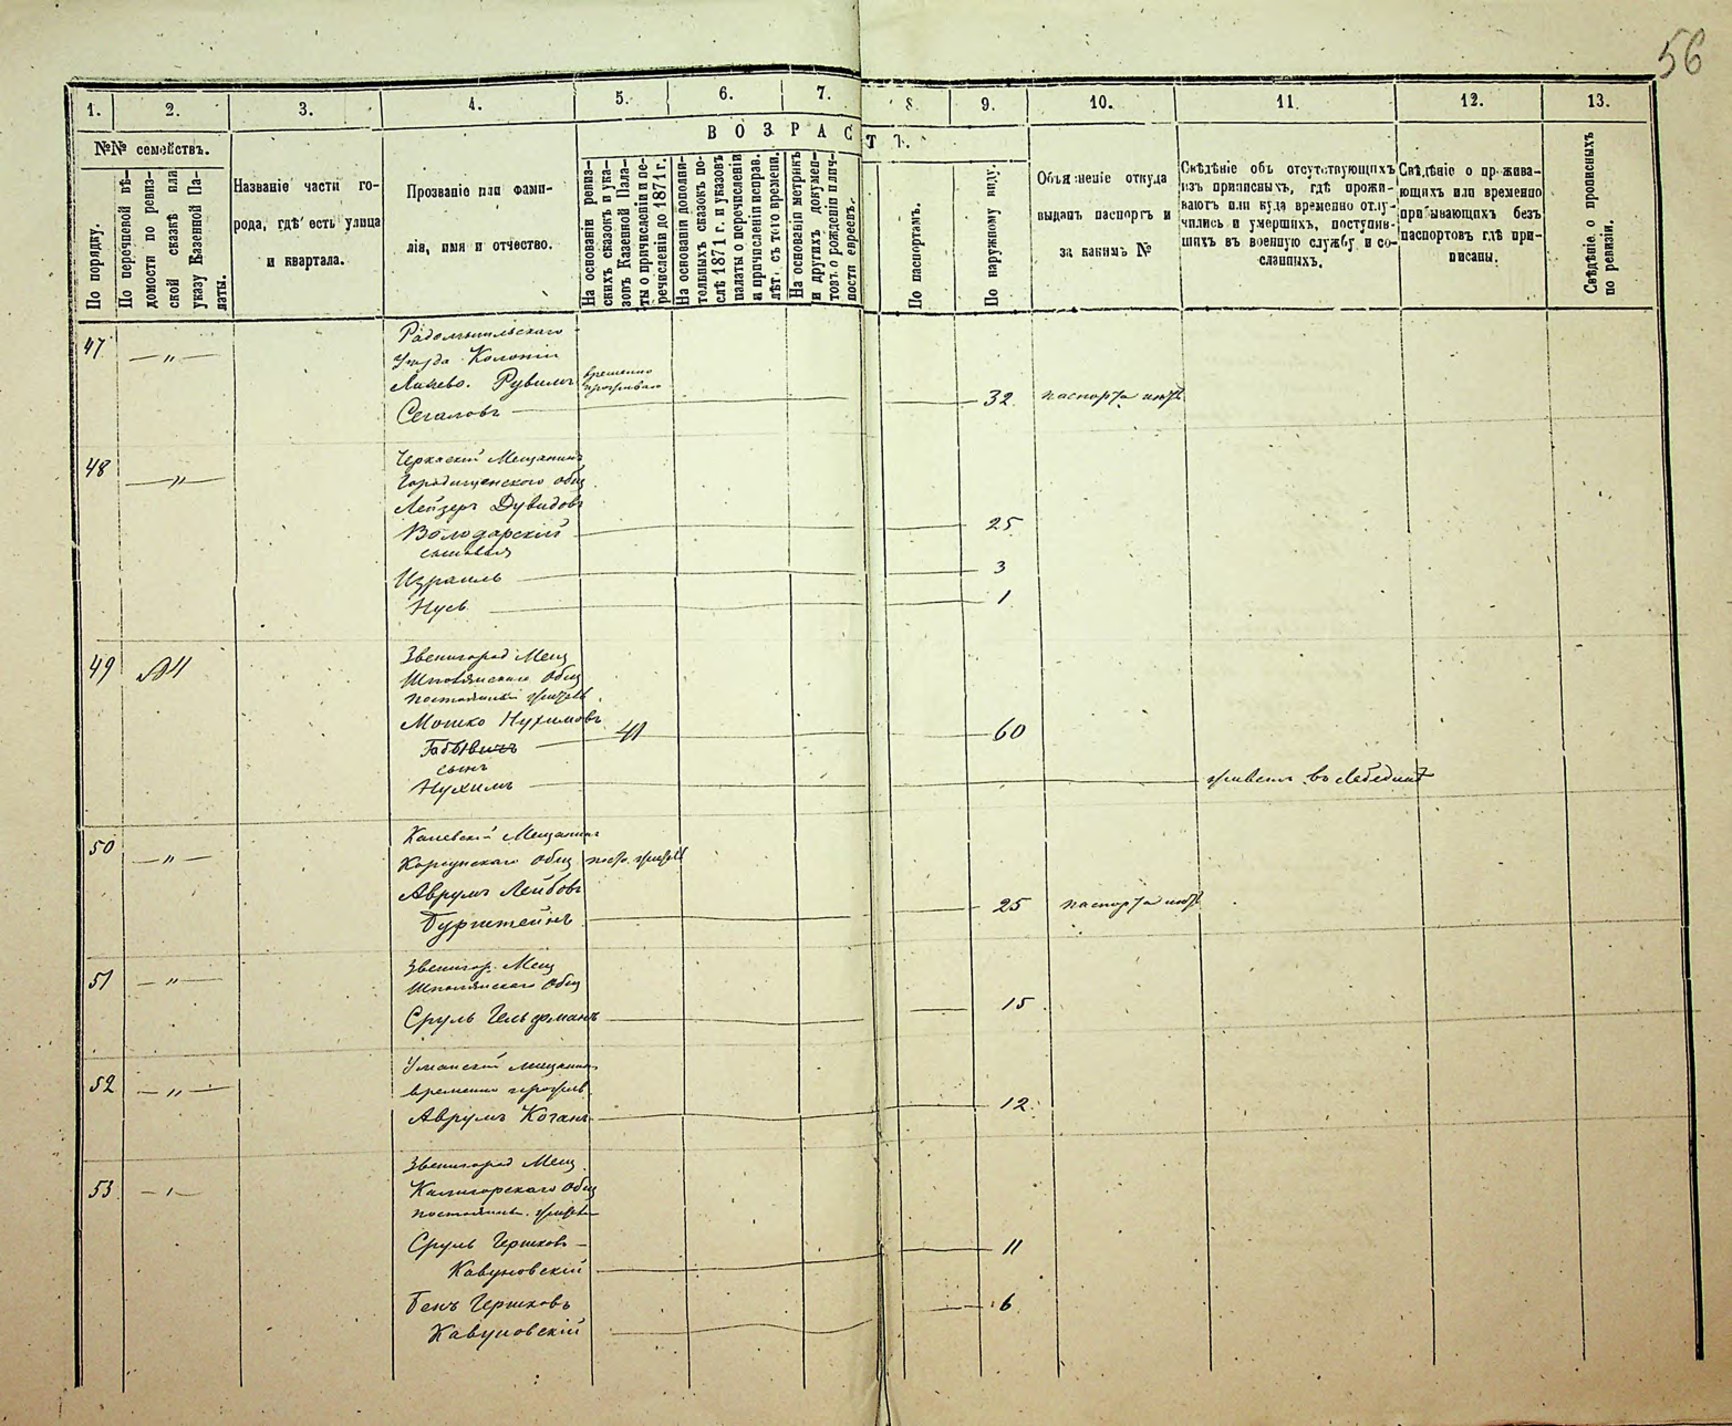 56
1. 2. 3. 4. 5. 6. 7. 8. 9. 10. 11. 12. 13.
ВОЗРАСТЪ.
№№ семействъ.
По порядку.
По перечневой вѣ-
домости по ревиз-
ской сказкѣ или
указу Казенной Па-
латы.
Названіе части го-
рода, гдѣ есть улица
и квартала.
Прозваніе или фами-
лія, имя и отчество.
На основаніи ревиз-
скихъ сказокъ и ука-
зовъ Казенной Пала-
ты о причисленіи и пе-
речисленіи до 1871 г.
На основаніи дополни-
тольныхъ сказокъ по-
слѣ 1871 г. и указовъ
палаты о перечисленіи
и причисленіи исправ.
лѣт. съ того времени.
На основаніи метрикъ
и другихъ докумен-
товъ о рожденіи и лич-
ности евреевъ.
По паспортамъ.
По наружному виду.
Объясненіе откуда
выданъ паспортъ и
за какимъ №
Свѣдѣніе объ отсутствующихъ
изъ приписныхъ, гдѣ прожи-
ваютъ или куда временно отлу-
чились и умершихъ, поступив-
шихъ въ военную службу и со-
сланныхъ.
Свѣдѣніе о прожива-
ющихъ или временно
прибывающихъ безъ
паспортовъ гдѣ при-
писаны.
Свѣдѣніе о прописныхъ
по ревизіи.
47 — „ —
Радомысльскаго
Уѣзда Колоніи
Рувимъ временно
Сегаловъ 32 паспорта нѣтъ
48 — „ —
Черкаскій Мещанинъ
Городищенского общ
Лейзеръ Дувидовъ
Володарскій 25
сыновья
Израиль 3
Нусь 1
49
Звенигород Мещ
Шполянскаго Общ
Мошко Нухимовъ 41 60
сынъ
Нухимъ живетъ въ Лебединѣ
50 — „ —
Каневскій Мещанинъ
Корсунскаго общ
Аврумъ Лейбовъ
Бурштейнъ 25 паспорта нѣтъ
51 — „ —
Звенигор. Мещ
Шполянскаго Общ
Сруль Гельфманъ 15
52 — „ —
Уманскій мещанинъ
временно прожив.
Аврумъ Коганъ 12
53
Звенигород Мещ.
Калигорскаго Общ
Сруль Гершковъ 11
Кавуновскій
Бенъ Гершковъ 6
Кавуновскій